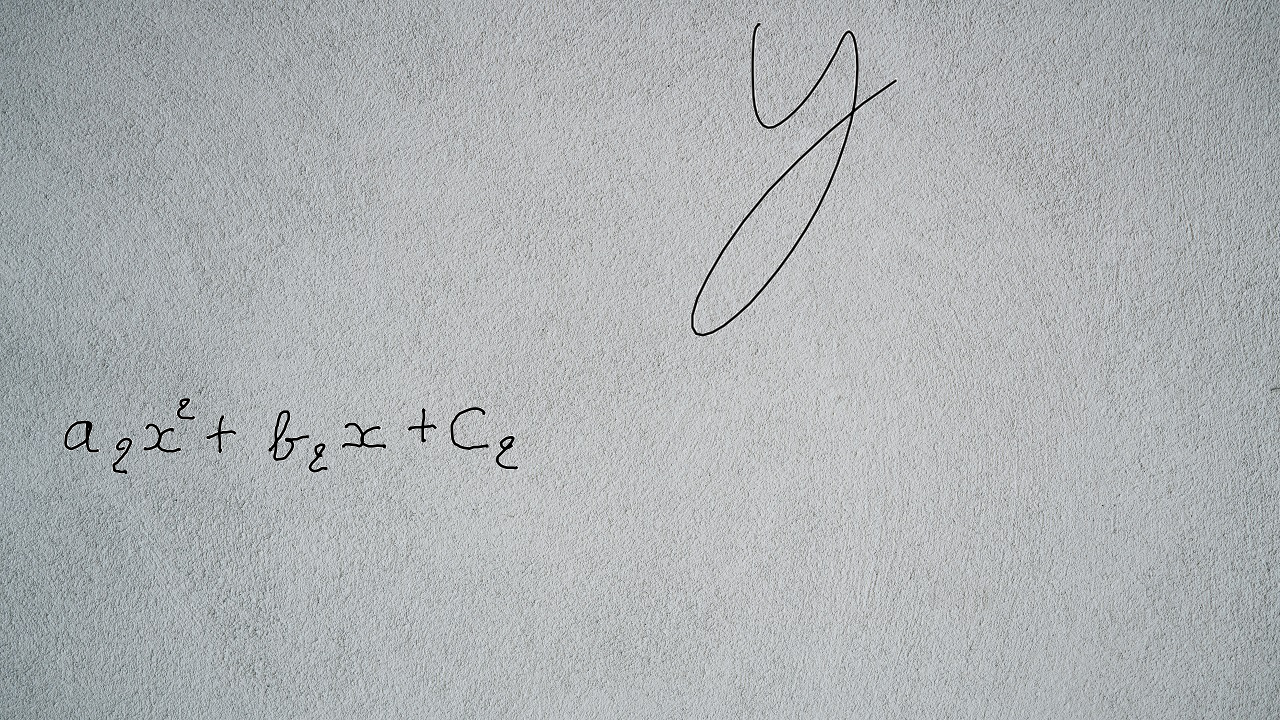 y
a₂x² + b₂x + C₂